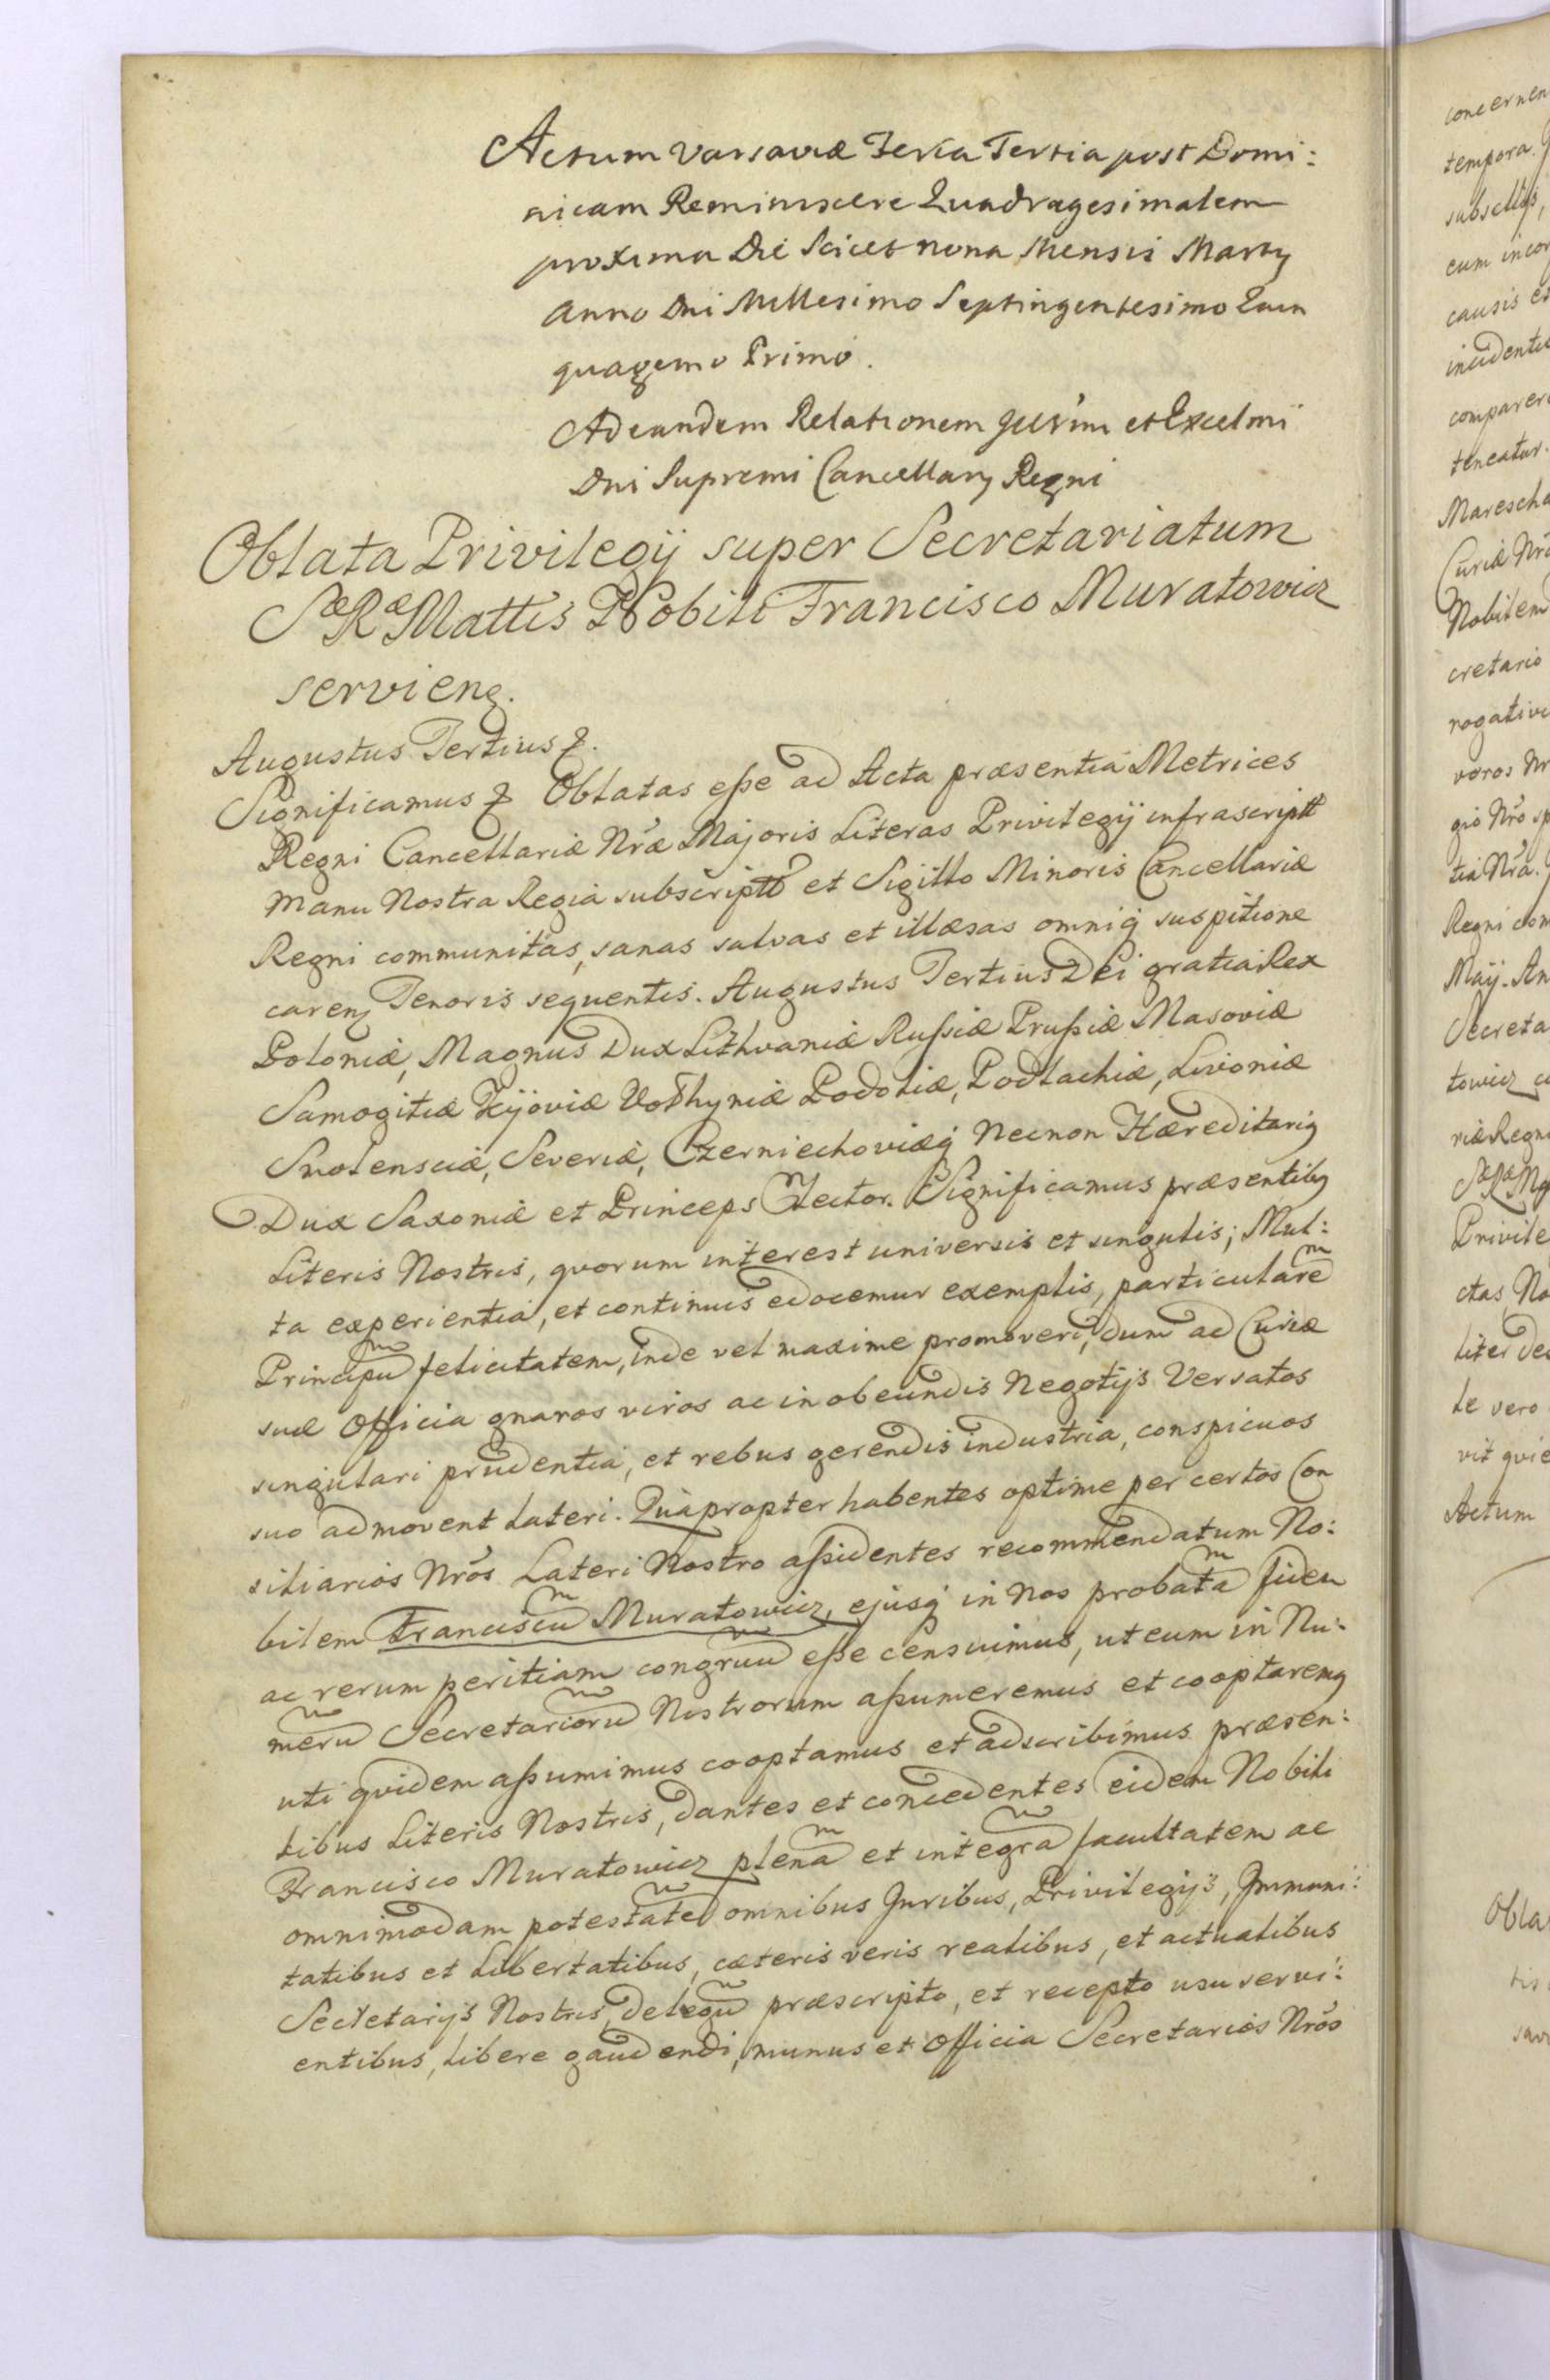 Actum Varsaviæ Feria Tertia post Domi:
nicam Reminiscere Quadragesimalem
proxima Die Scicet nona Mensis Marty
Anno Dni Millesimo Septingentesimo Quin
quagemo Primo.
Ad eandem Relationem et Excelmi
Dni Supremi Cancellary Regni
Oblata Privilegij super Secretariatum
SæRæ Mattis Nobili Francisco Muratowicz
servieng.
Augustus Tertius &.
Significamus & Oblatas eße ad Acta præsentia Metrices
Regni Cancellariæ Nræ Majoris Literas Privilegij infrascriptt
Manu Nostra Regia subscriptt et Sigillo Minoris Cancellariæ
Regni communitas, sanas salvas et illæsas omniq suspitione
careng Tenoris sequentis. Augustus Tertius Dei gratia Rex
Poloniæ, Magnus Dux Lithvaniæ Rußiæ Prußiæ Masoviæ
Samogitiæ Kijoviæ Volhyniæ Podoliæ, Podlachiæ, Livoniæ
Smolensciæ, Severiæ, Czerniechoviæq Necnon Hæreditarig
Dux Saxoniæ et Princeps Elector. Significamus præsentibg
Literis Nostris, qvorum interest universis et singulis; Mul:
ta experientia, et continuis edocemur exemplis, particulare͂m
Principu͂m felicitatem, inde vel maxime promoveri, dum ad Curiæ
suæ Officia gnaros viros ac in obeundis Negotijs Versatos
singulari prudentia, et rebus gerendis industria, conspicuos
suo admovent Lateri. Qvapropter habentes optime per certos Con
siliarios Nrós Lateri Nostro aßidentes recommendatum No:
bilem Franciscu͂m Muratowicz, ejusq in Nos probata͂m fidem
ac rerum peritiam congruu͂m eße censuimus, ut eum in Nu:
meru͂m Secretarioru͂m Nostrorum aßumeremus et cooptaremg
uti qvidem aßumimus cooptamus et adscribimus præsen:
tibus Literis Nostris, dantes et concedentes eidem Nobili
Francisco Muratowicz plena͂m et integra͂m facultatem ac
omnimodam potestate͂m omnibus Juribus, Privilegijs, Immuni:
tatibus et Libertatibus, cæteris veris realibus, et actualibus
Secretarijs Nostris, de legu͂m præscripto, et recepto usu servi:
entibus, libere gaudendi, munus et Officia Secretarios Nrós